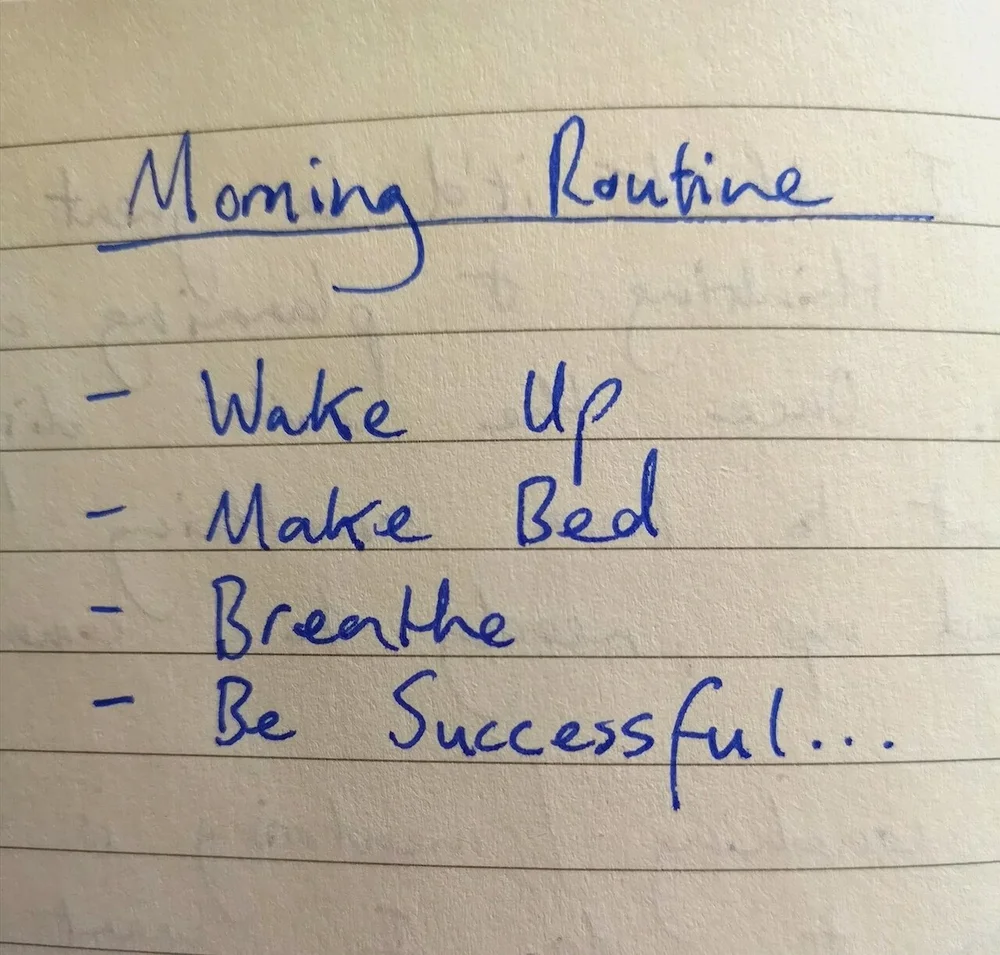 Morning Routine
- Wake Up
- Make Bed
- Breathe
- Be Successful...